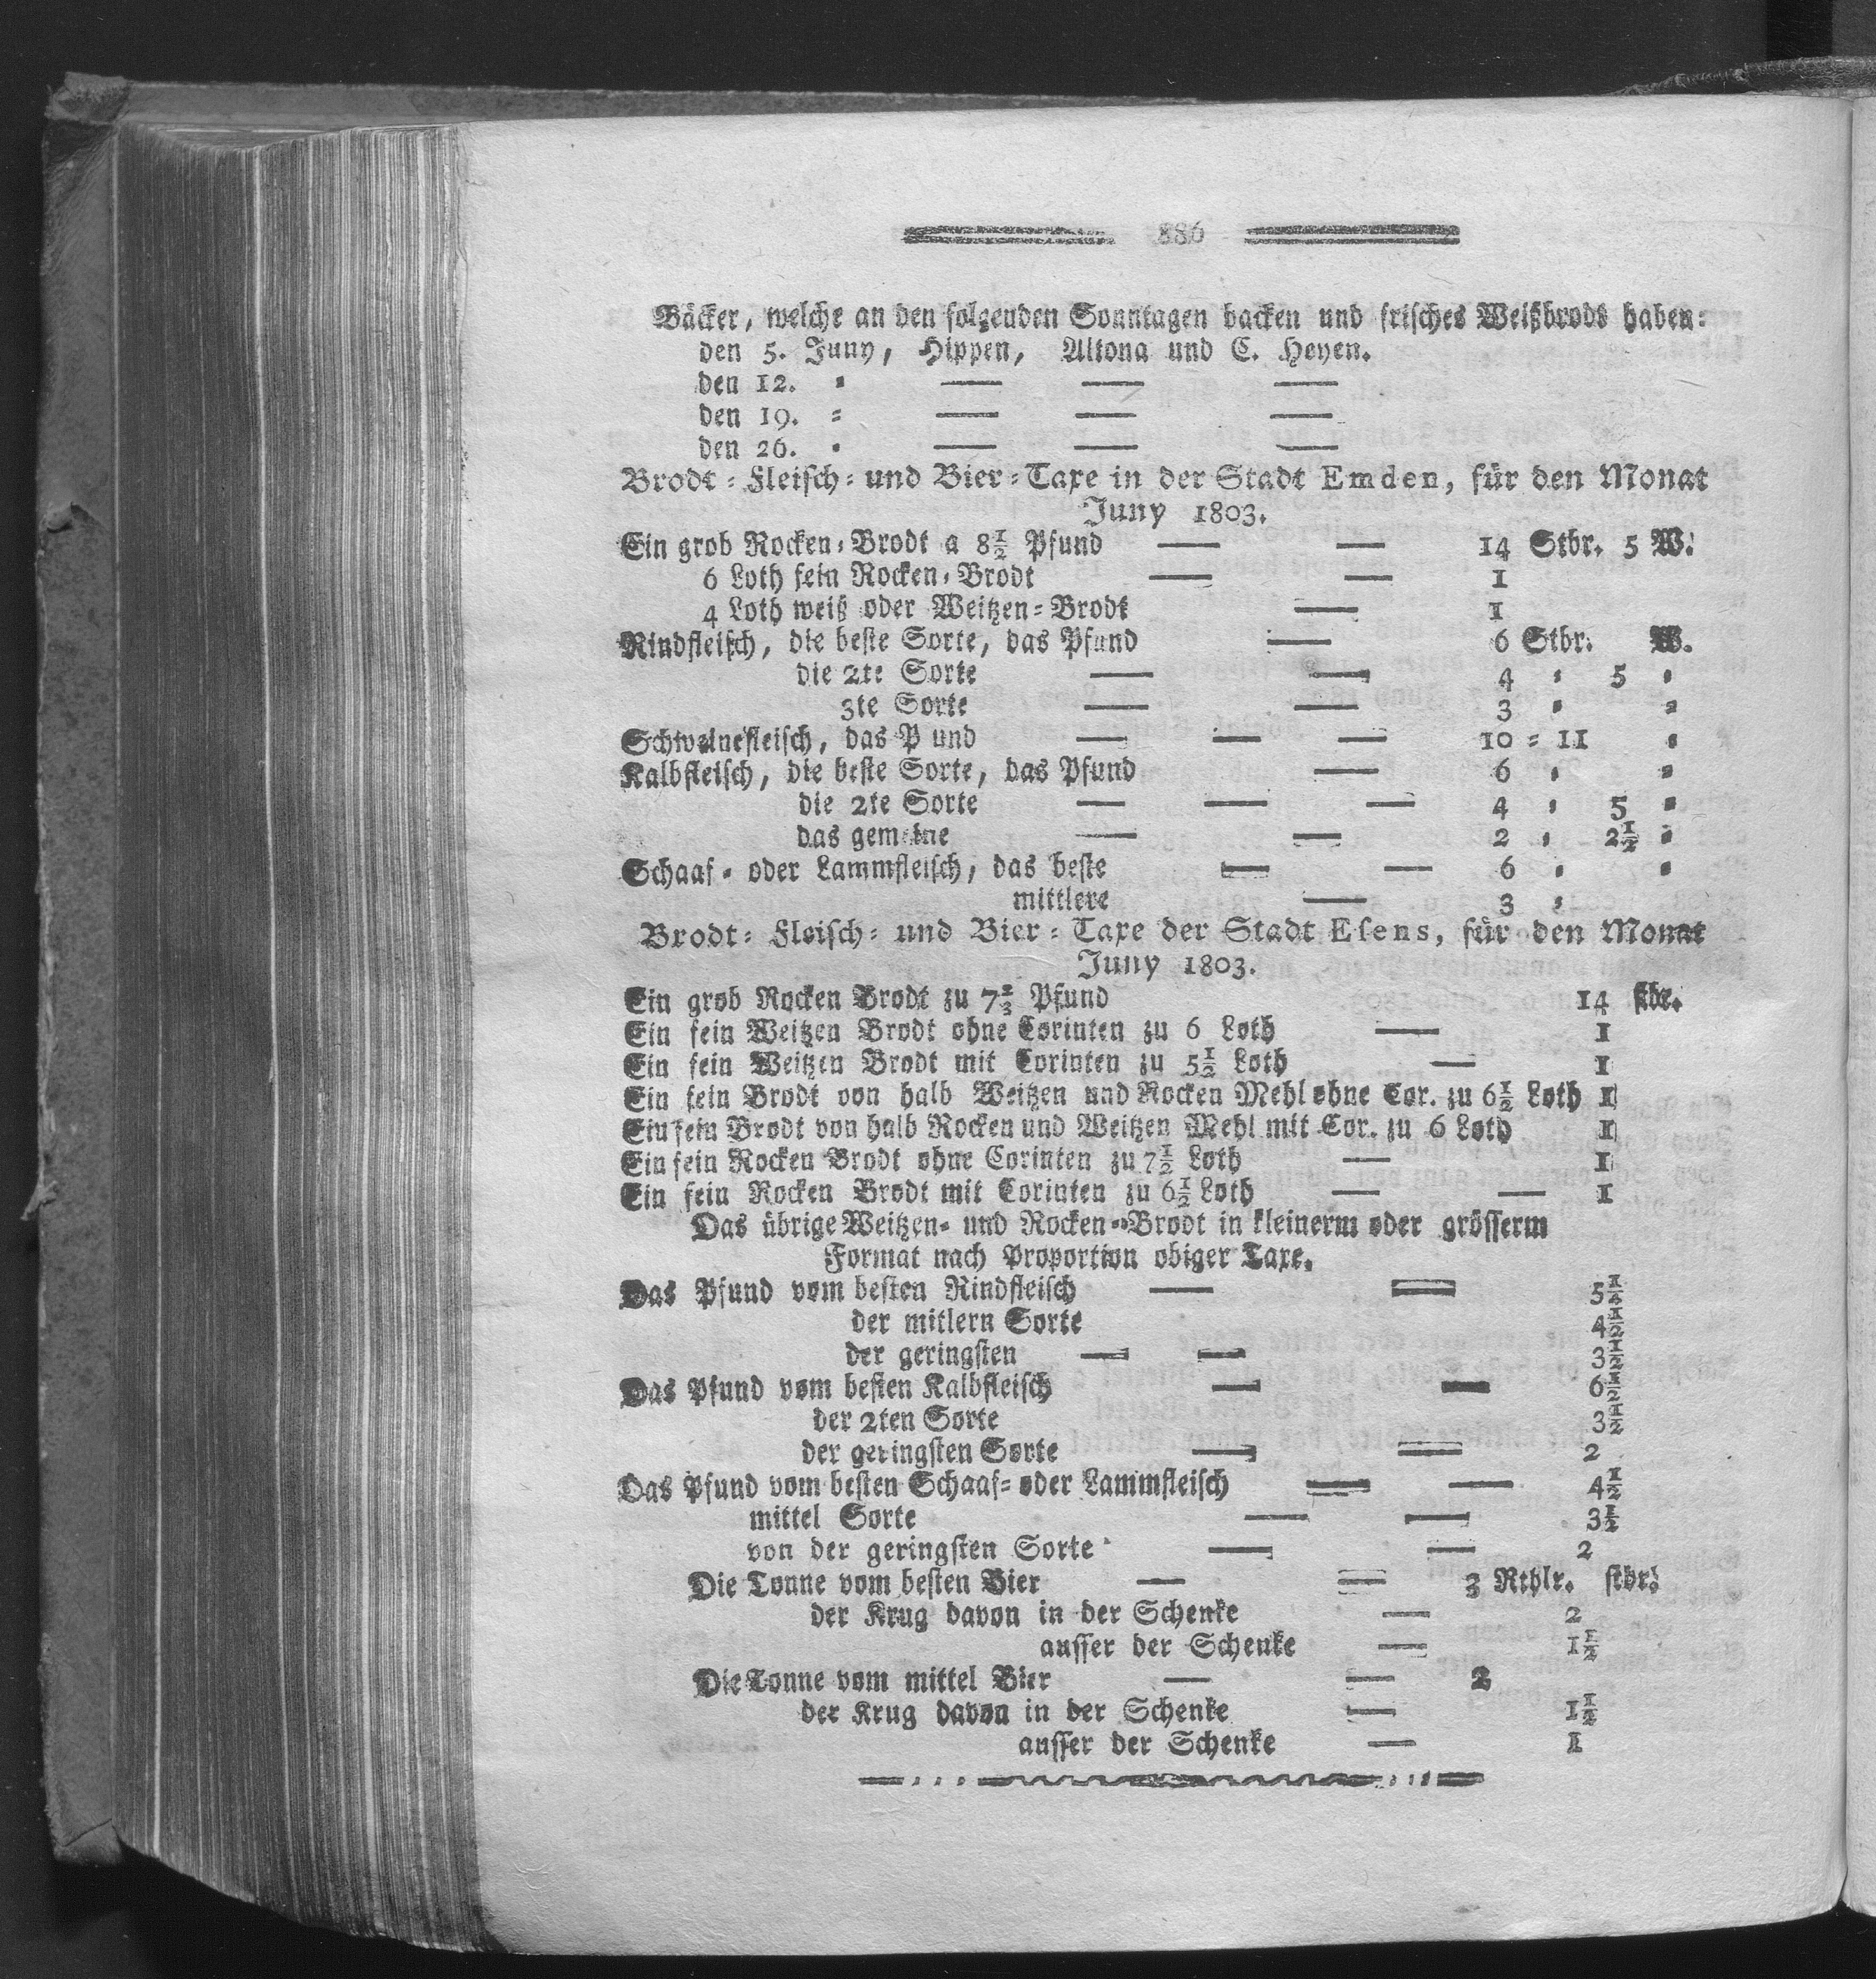 886
Bäcker, welche an den folgenden Sonntagen backen und frisches Weißbrods haben:
den 5. Juny, Hippen, Altona und C. Heyen.
den 12. = — — —
den 19. = — — —
den 26. = — — —
Brodt = Fleisch = und Bier = Taxe in der Stadt Emden, für den Monat
Juny 1803.
Ein grob Rocken = Brodt a 8½ Pfund — — 14 Stbr. 5 W.
6 Loth fein Rocken = Brodt — — 1
4 Loth weiß oder Weitzen = Brodt — 1
Rindfleisch, die beste Sorte, das Pfund — 6 Stbr. W.
die 2te Sorte — — 4 = 5 =
3te Sorte — — 3 = =
Schweinefleisch, das P und — — — 10 = 11 =
Kalbfleisch, die beste Sorte, das Pfund — 6 = =
die 2te Sorte — — — 4 = 5 =
das gemeine — — 2 = 2½ =
Schaaf = oder Lammfleisch, das beste — — 6 = =
mittlere — 3 =
Brodt = Fleisch = und Bier = Taxe der Stadt Esens, für den Monat
Juny 1803.
Ein grob Rocken Brodt zu 7⅔ Pfund 14 stbr.
Ein fein Weitzen Brodt ohne Corinten zu 6 Loth — 1
Ein fein Weitzen Brodt mit Corinten zu 5½ Loth — 1
Ein fein Brodt von halb Weitzen und Rocken Mehl ohne Cor. zu 6½ Loth 1
Ein fein Brodt von halb Rocken und Weitzen Mehl mit Cor. zu 6 Loth 1
Ein fein Rocken Brodt ohne Corinten zu 7½ Loth — 1
Ein fein Rocken Brodt mit Corinten zu 6½ Loth — — 1
Das übrige Weitzen = und Rocken = Brodt in kleinerm oder grösserm
Format nach Proportion obiger Taxe.
Das Pfund vom besten Rindfleisch — — 5¼
der mitlern Sorte 4½
der geringsten — — 3½
Das Pfund vom besten Kalbfleisch — — 6½
der 2ten Sorte 3½
der geringsten Sorte — — 2
Das Pfund vom besten Schaaf = oder Lammfleisch — — 4½
mittel Sorte — — 3½
von der geringsten Sorte — — 2
Die Tonne vom besten Bier — — 3 Rthlr. stbr.
der Krug davon in der Schenke — 2
ausser der Schenke — 1½
Die Tonne vom mittel Bier — — 2
der Krug davon in der Schenke — 1½
ausser der Schenke — 1